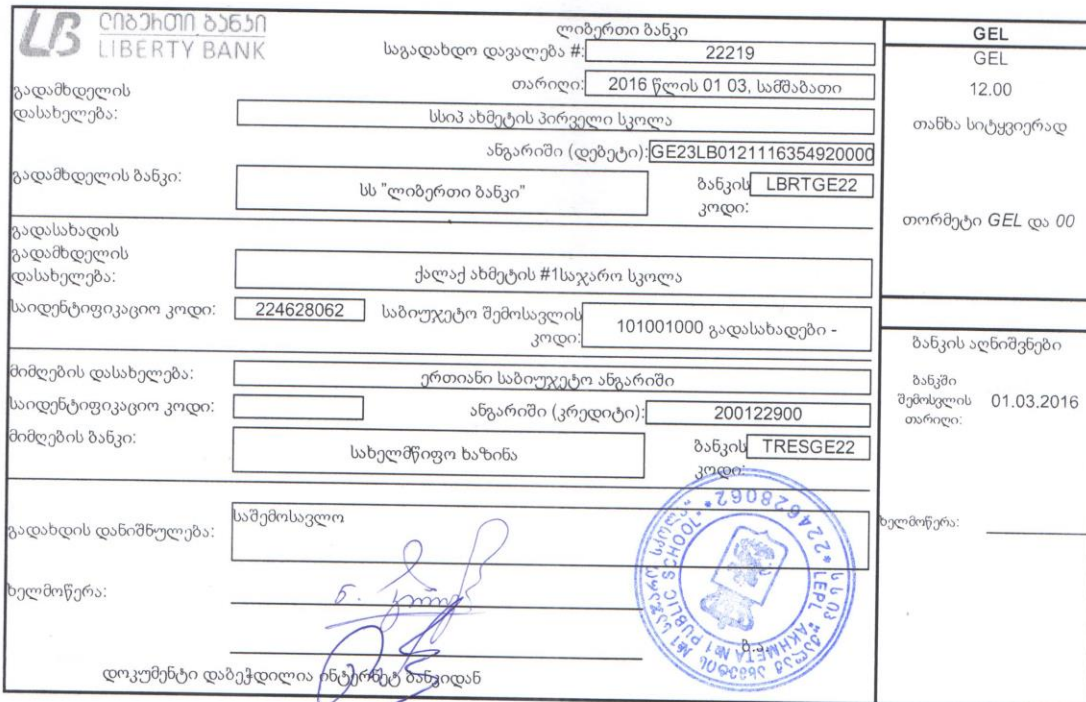 ლიბერთი ბანკი
LIBERTY BANK
ლიბერთი ბანკი
საგადახდო დავალება #: 22219
თარიღი: 2016 წლის 01 03, სამშაბათი
გადამხდელის
დასახელება: სსიპ ახმეტის პირველი სკოლა
ანგარიში (დებეტი): GE23LB0121116354920000
გადამხდელის ბანკი: სს "ლიბერთი ბანკი" ბანკის კოდი: LBRTGE22
გადასახადის
გადამხდელის
დასახელება: ქალაქ ახმეტის #1საჯარო სკოლა
საიდენტიფიკაციო კოდი: 224628062 საბიუჯეტო შემოსავლის კოდი: 101001000 გადასახადები -
მიმღების დასახელება: ერთიანი საბიუჯეტო ანგარიში
საიდენტიფიკაციო კოდი: ანგარიში (კრედიტი): 200122900
მიმღების ბანკი: სახელმწიფო ხაზინა ბანკის კოდი: TRESGE22
გადახდის დანიშნულება: საშემოსავლო
ხელმოწერა:
ბ.ა.
დოკუმენტი დაბეჭდილია ინტერნეტ ბანკიდან
GEL
GEL
12.00
თანხა სიტყვიერად
თორმეტი GEL და 00
ბანკის აღნიშვნები
ბანკში
შემოსვლის 01.03.2016
თარიღი:
ხელმოწერა:
*224628062*
LEPL AKHMETA №1 PUBLIC SCHOOL